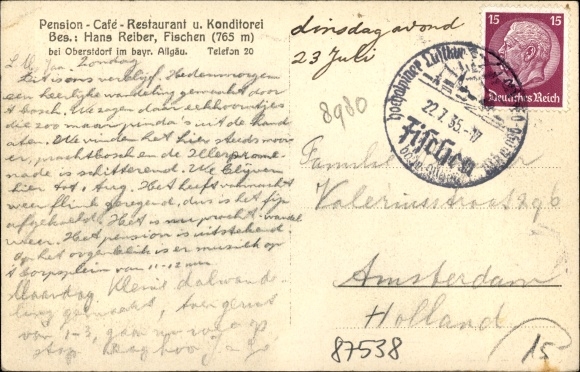 Pension - Café - Restaurant u. Konditorei
Bes.: Hans Reiber, Fischen (765 m)
bei Oberstdorf im bayr. Allgäu. Telefon 20
dinsdagavond
23 Juli
15 15
Deutsches Reich
22.7.35.-17
Fischen
8980
Zondag
Dit is ons verblijf. Hedenmorgen
een heerlijke wandeling gemaakt door
't bosch. We zagen daar eekhoorntjes
die zoo maar pinda's uit de hand
aten. We vinden het hier steeds mooi
er, prachtbosch en de Illerprome-
nade is schitterend. We blijven
hier tot 1 Aug. Het heeft vannacht
weer flink geregend, dus is het fijn
afgekoeld. Het is nu prachtwandel
weer. Het pension is uitstekend.
Op het oogenblik is er muziek op
't dorpsplein van 11-12 uur
Maandag. Kleine dalwande-
ling gemaakt, toen gerust
van 1-3, gaan nu op
stap
Familie
Valeriusstraat 89b
Amsterdam
Holland
87538
15